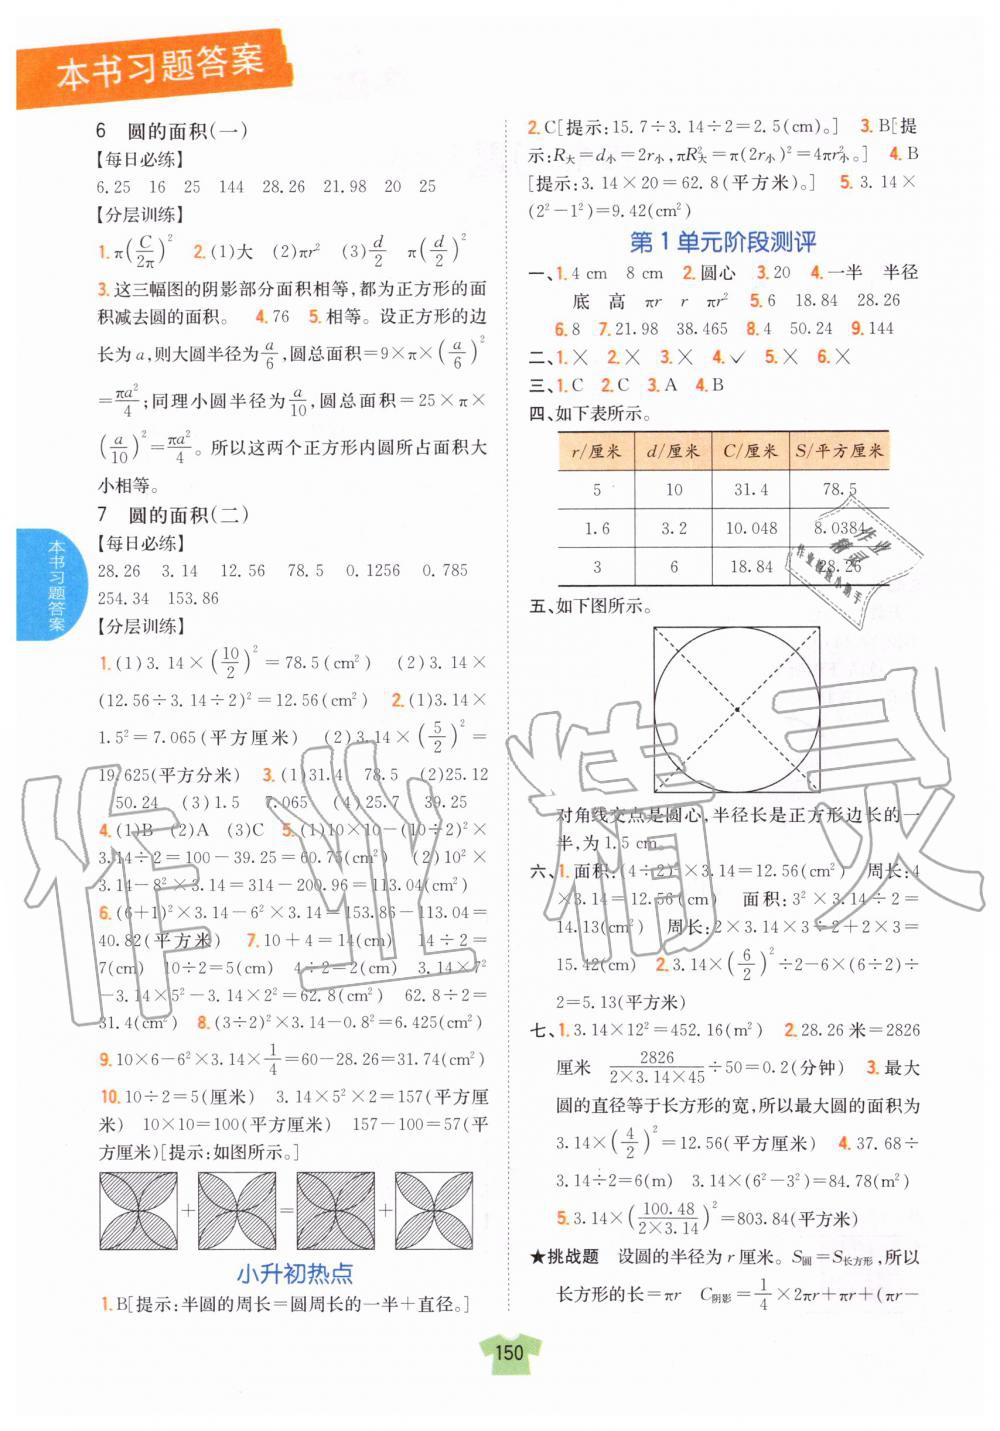 本书习题答案
6 圆的面积(一)
【每日必练】
6.25 16 25 144 28.26 21.98 20 25
【分层训练】
1.π(C/2π)² 2.(1)大 (2)πr² (3)d/2 π(d/2)²
3.这三幅图的阴影部分面积相等,都为正方形的面
积减去圆的面积。 4.76 5.相等。设正方形的边
长为a,则大圆半径为a/6,圆总面积=9×π×(a/6)²
=πa²/4;同理小圆半径为a/10,圆总面积=25×π×
(a/10)²=πa²/4。所以这两个正方形内圆所占面积大
小相等。
7 圆的面积(二)
【每日必练】
28.26 3.14 12.56 78.5 0.1256 0.785
254.34 153.86
【分层训练】
1.(1)3.14×(10/2)²=78.5(cm²) (2)3.14×
(12.56÷3.14÷2)²=12.56(cm²) 2.(1)3.14×
1.5²=7.065(平方厘米) (2)3.14×(5/2)²=
19.625(平方分米) 3.(1)31.4 78.5 (2)25.12
50.24 (3)1.5 7.065 (4)25.7 39.25
4.(1)B (2)A (3)C 5.(1)10×10-(10÷2)²×
3.14÷2=100-39.25=60.75(cm²) (2)10²×
3.14-8²×3.14=314-200.96=113.04(cm²)
6.(6+1)²×3.14-6²×3.14=153.86-113.04=
40.82(平方米) 7.10+4=14(cm) 14÷2=
7(cm) 10÷2=5(cm) 4÷2=2(cm) 3.14×7²
-3.14×5²-3.14×2²=62.8(cm²) 62.8÷2=
31.4(cm²) 8.(3÷2)²×3.14-0.8²=6.425(cm²)
9.10×6-6²×3.14×1/4=60-28.26=31.74(cm²)
10.10÷2=5(厘米) 3.14×5²×2=157(平方厘
米) 10×10=100(平方厘米) 157-100=57(平
方厘米)[提示:如图所示。]
+ = +
小升初热点
1.B[提示:半圆的周长=圆周长的一半+直径。]
2.C[提示:15.7÷3.14÷2=2.5(cm)。] 3.B[提
示:R大=d小=2r小,πR²大=π(2r小)²=4πr²小。] 4.B
[提示:3.14×20=62.8(平方米)。] 5.3.14×
(2²-1²)=9.42(cm²)
第1单元阶段测评
一、1.4 cm 8 cm 2.圆心 3.20 4.一半 半径
底 高 πr r πr² 5.6 18.84 28.26
6.8 7.21.98 38.465 8.4 50.24 9.144
二、1.× 2.× 3.× 4.✓ 5.× 6.×
三、1.C 2.C 3.A 4.B
四、如下表所示。
r/厘米 d/厘米 C/厘米 S/平方厘米
5 10 31.4 78.5
1.6 3.2 10.048 8.0384
3 6 18.84 28.26
五、如下图所示。
对角线交点是圆心,半径长是正方形边长的一
半,为1.5 cm。
六、1.面积:(4÷2)²×3.14=12.56(cm²) 周长:4
×3.14=12.56(cm) 面积:3²×3.14÷2=
14.13(cm²) 周长:2×3.14×3÷2+2×3=
15.42(cm) 2.3.14×(6/2)²÷2-6×(6÷2)÷
2=5.13(平方米)
七、1.3.14×12²=452.16(m²) 2.28.26米=2826
厘米 2826/2×3.14×45÷50=0.2(分钟) 3.最大
圆的直径等于长方形的宽,所以最大圆的面积为
3.14×(4/2)²=12.56(平方厘米) 4.37.68÷
3.14÷2=6(m) 3.14×(6²-3²)=84.78(m²)
5.3.14×(100.48/2×3.14)²=803.84(平方米)
★挑战题 设圆的半径为r厘米。S圆=S长方形,所以
长方形的长=πr C阴影=1/4×2πr+πr+(πr-
本书习题答案
150
作业精灵
作业
精灵